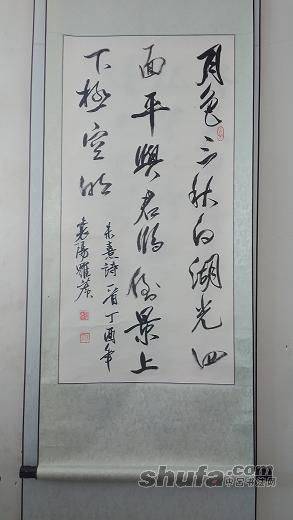 月色三秋白湖光四
面平與君凌倒景上
下極空明
朱熹詩一首丁酉年
襄陽羅
shufa.com
中国书法网